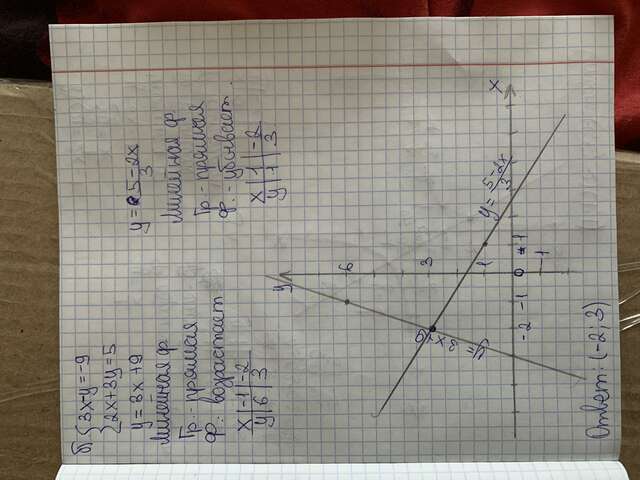 б) { 3x-y=-9
{ 2x+3y=5
y=3x+9
Линейная ф.
Гр.-прямая
ф. возрастает
x | -1 | -2
y | 6 | 3
y = 5-2x / 3
Линейная ф.
Гр.-прямая
ф.-убывает.
x | 1 | -2
y | 1 | 3
y
6
3
1
-2 -1 0 1
-1
x
y=3x+9
y = 5-2x / 3
Ответ: (-2; 3)